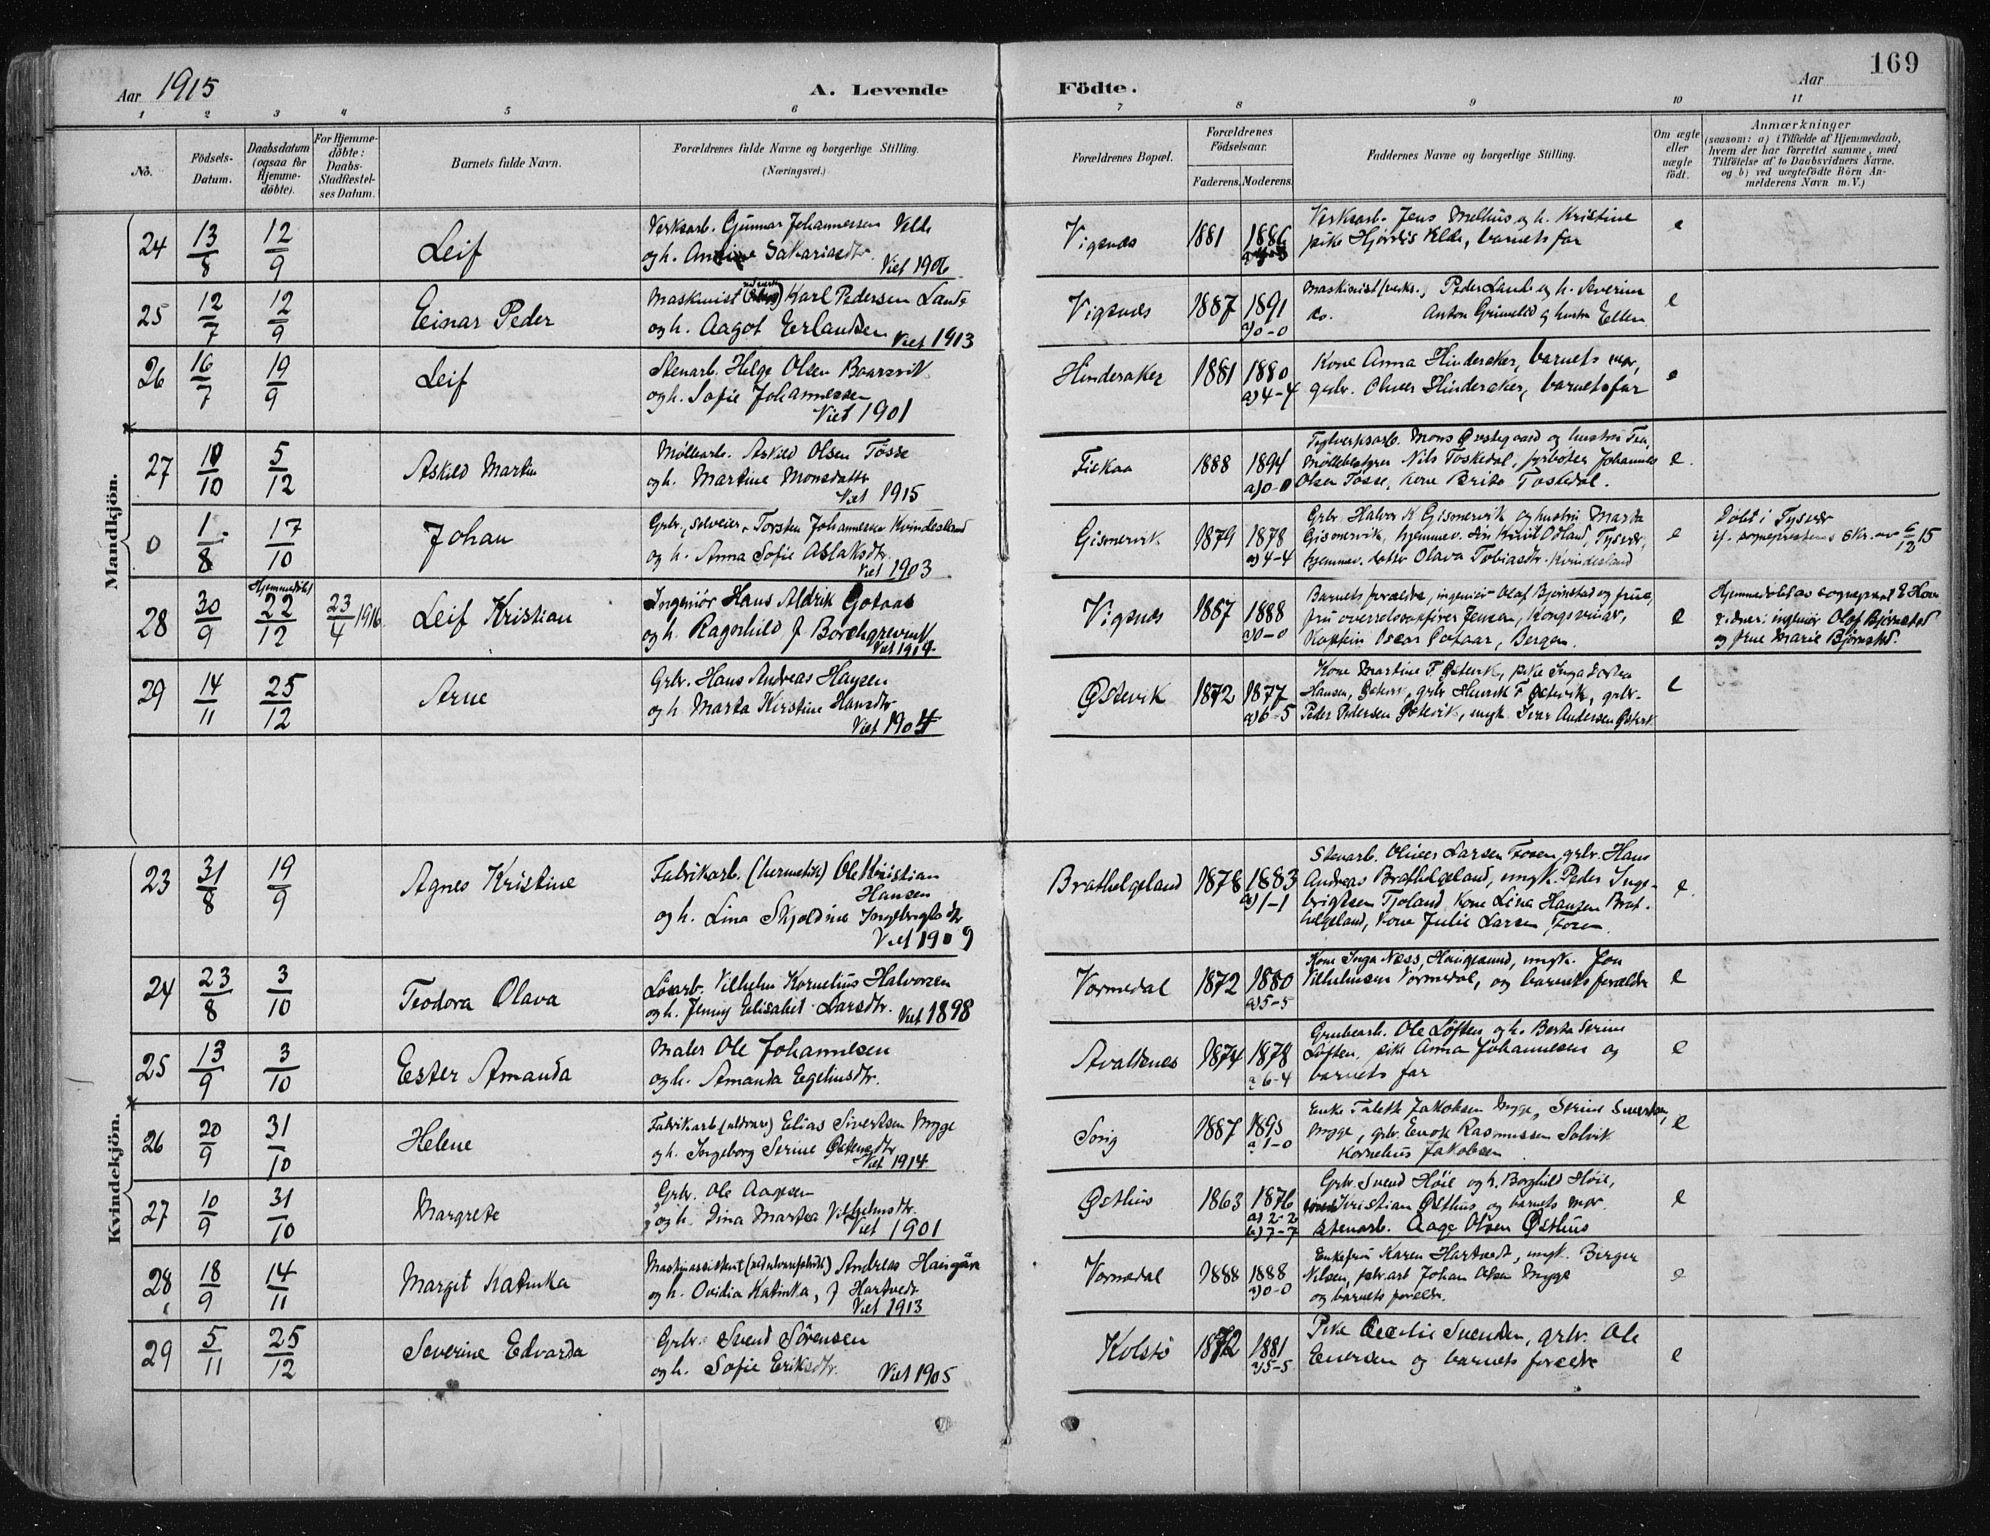 169
Aar 1915
A. Levende Födte.
Aar
1 2 3 4 5 6 7 8 9 10 11
No.
Födsels-Datum.
Daabsdatum (ogsaa for Hjemme-döbte).
For Hjemme-döbte: Daabs-Stadfæstel-ses Datum.
Barnets fulde Navn.
Forældrenes fulde Navne og borgerlige Stilling.
(Næringsvei.)
Forældrenes Bopæl.
Forældrenes Födselsaar.
Faderens. Moderens.
Faddernes Navne og borgerlige Stilling.
Om ægte eller uægte födt.
Anmærkninger
(saasom: a) i Tilfælde af Hjemmedaab, hvem der har forrettet samme, med Tilföielse af to Daabsvidners Navne. og b) ved uægtefödte Börn An-melderens Navn m. V.)
Mandkjön.
24 13/8 12/9 Leif
Verksarb. Gunnar Johannessen Velde
og h. Sakariasdtr. Viet 1906
Vigsnes 1881 1886
Verksarb. Jens Melhus og h. Kristine
pike Hjördis Velde, barnets far
e
25 12/7 12/9 Einar Peder
Maskinist Karl Pedersen Lande
og h. Aagot Erlandsen Viet 1913
Vigsnes 1887 1891 a) 0-0
Maskinist (verks., Peder Lande og h. Severine
do. Anton Grimelid og hustru Ellen
e
26 16/7 19/9 Leif
Stenarb. Helge Olsen Baarsvik
og h. Sofie Johannessen
Viet 1901
Hinderaker 1881 1880 a) 4-4
Kone Anna Hinderaker, barnets mor,
grbr. Oliver Hinderaker, barnets far
e
27 10/10 5/12 Askild Martin
Møllearb. Askild Olsen Tösse
og h. Martine Monsdatter
Viet 1915
Fiskaa 1888 1894 a) 0-0
Teglverksarb. Mons Østegaard og hustru Tea,
Møllebestyrer Nils Toskedal, fyrböter Johannes
Olsen Tösse, kone Brita Toskedal.
e.
0 1/8 17/10 Johan
Grbr., selveier, Torsten Johannesen Kvindesland
og h. Anna Sofie Aslaksdtr.
Viet 1903
Gismervik 1879 1878 a) 4-4
Grbr. Halvor K Gismervik og hustru Marta
Gismervik, hjemmev. sön Knut Odland, Tysvær,
hjemmev. datter Olava Tobiasdtr. Kvindesland
e
Döbt i Tysvær
jf. sogneprestens skr. av 6/12 15
28 30/9 Hjemmedöbt 22/12 23/4 1916 Leif Kristian
Ingeniör Hans Aldrik Gotaas
og h. Ragnhild f Borchgrevink
Viet 1914
Vigsnes 1887 1888 a) 0-0
Barnets forældre, ingeniör Olaf Björnstad og frue,
fru overrelsförer Jensen, Kongsvinger,
Kaptein Oscar Gotaas, Bergen.
e
Hjemmedöbt av sogneprest E Hove
vidner: ingeniör Olaf Björnstad
og frue Marie Björnstad.
29 14/11 25/12 Arne
Grbr. Hans Andreas Hansen
og h. Marta Kirstine Hansdtr.
Viet 1904
Østevik 1872 1877 a) 6-5
Kone Martine T. Østevik, pike Inga
Hansen, Østevik, grbr Henrik T Østevik, grbr.
Peder Pedersen Østevik, ungk. Ivar Andersen Østevik
e
Kvindekjön.
23 31/8 19/9 Agnes Kristine
Fabrikarb. (hermetik) Ole Kristian
Hansen
og h. Lina Skjoldine Ingebrigtsdtr
Viet 1909
Brathelgeland 1878 1883 a) 1-1
Stenarb. Oliver Larsen Fosen, grbr. Hans
Andreas Brathelgeland, ungk. Peder Inge-
brigtsen Tjoland, Kone Lina Hansen Brat-
helgeland, Kone Julie Larsen Fosen
e.
24 23/8 3/10 Teodora Olava
Lösarb. Vilhelm Kornelius Halvorsen
og h. Jenny Elisabet Larsdtr. Viet 1898
Vormedal 1872 1880 a) 5-5
Kone Inga Næss, Haugesund, ungk. Jon
Vilhelmsen Vormedal, og barnets forældre
e
25 13/9 3/10 Ester Amanda
Maler Ole Johannesen
og h. Amanda Egeliusdtr.
Avaldsnes 1874 1878 a 6-4
Grubearb. Ole Løften, og h. Berta Serine
Løften, pike Anna Johannesen og
barnets far
e
26 20/9 31/10 Helene
Fabrikarb (uldvare) Elias Sivertsen Myge
og h. Ingeborg Serine
Viet 1914
Sørig 1887 1893 a 1-0
Enke Taleth Jakobsen Myge, Serine Sivertsen,
Myge, grbr. Enok Rasmussen Solvik
Kornelius Jakobsen
e
27 10/9 31/10 Margrete
Grbr. Ole Aagesen
og h. Dina Martea Vilhelmsdtr.
Viet 1901
Østhus 1863 1876 a) 2-2 b) 7-7
Grbr. Svend Höie og h. Borghild Höie,
Kristian Østhus og barnets mor
stenarb. Aage Olsen Østhus
e
28 18/9 14/11 Margit Katinka
Maskinassistent Andreas
og h. Ovidia Katinka, f Hartvedt
Viet 1913
Vormedal 1888 1888 a) 0-0
Enkefru Karen Hartvedt, ungk. Berger
Nilsen, Johan Olsen Myge
og barnets foreldre.
e
29 5/11 25/12 Severine Edvarda
Grbr. Svend Sörensen
og h. Sofie Eriksdtr. Viet 1905
Kolstö 1872 1881 a) 5-5
Pike Cecilie Svendsen, grbr. Ole
Enersen og barnets foreldre
e